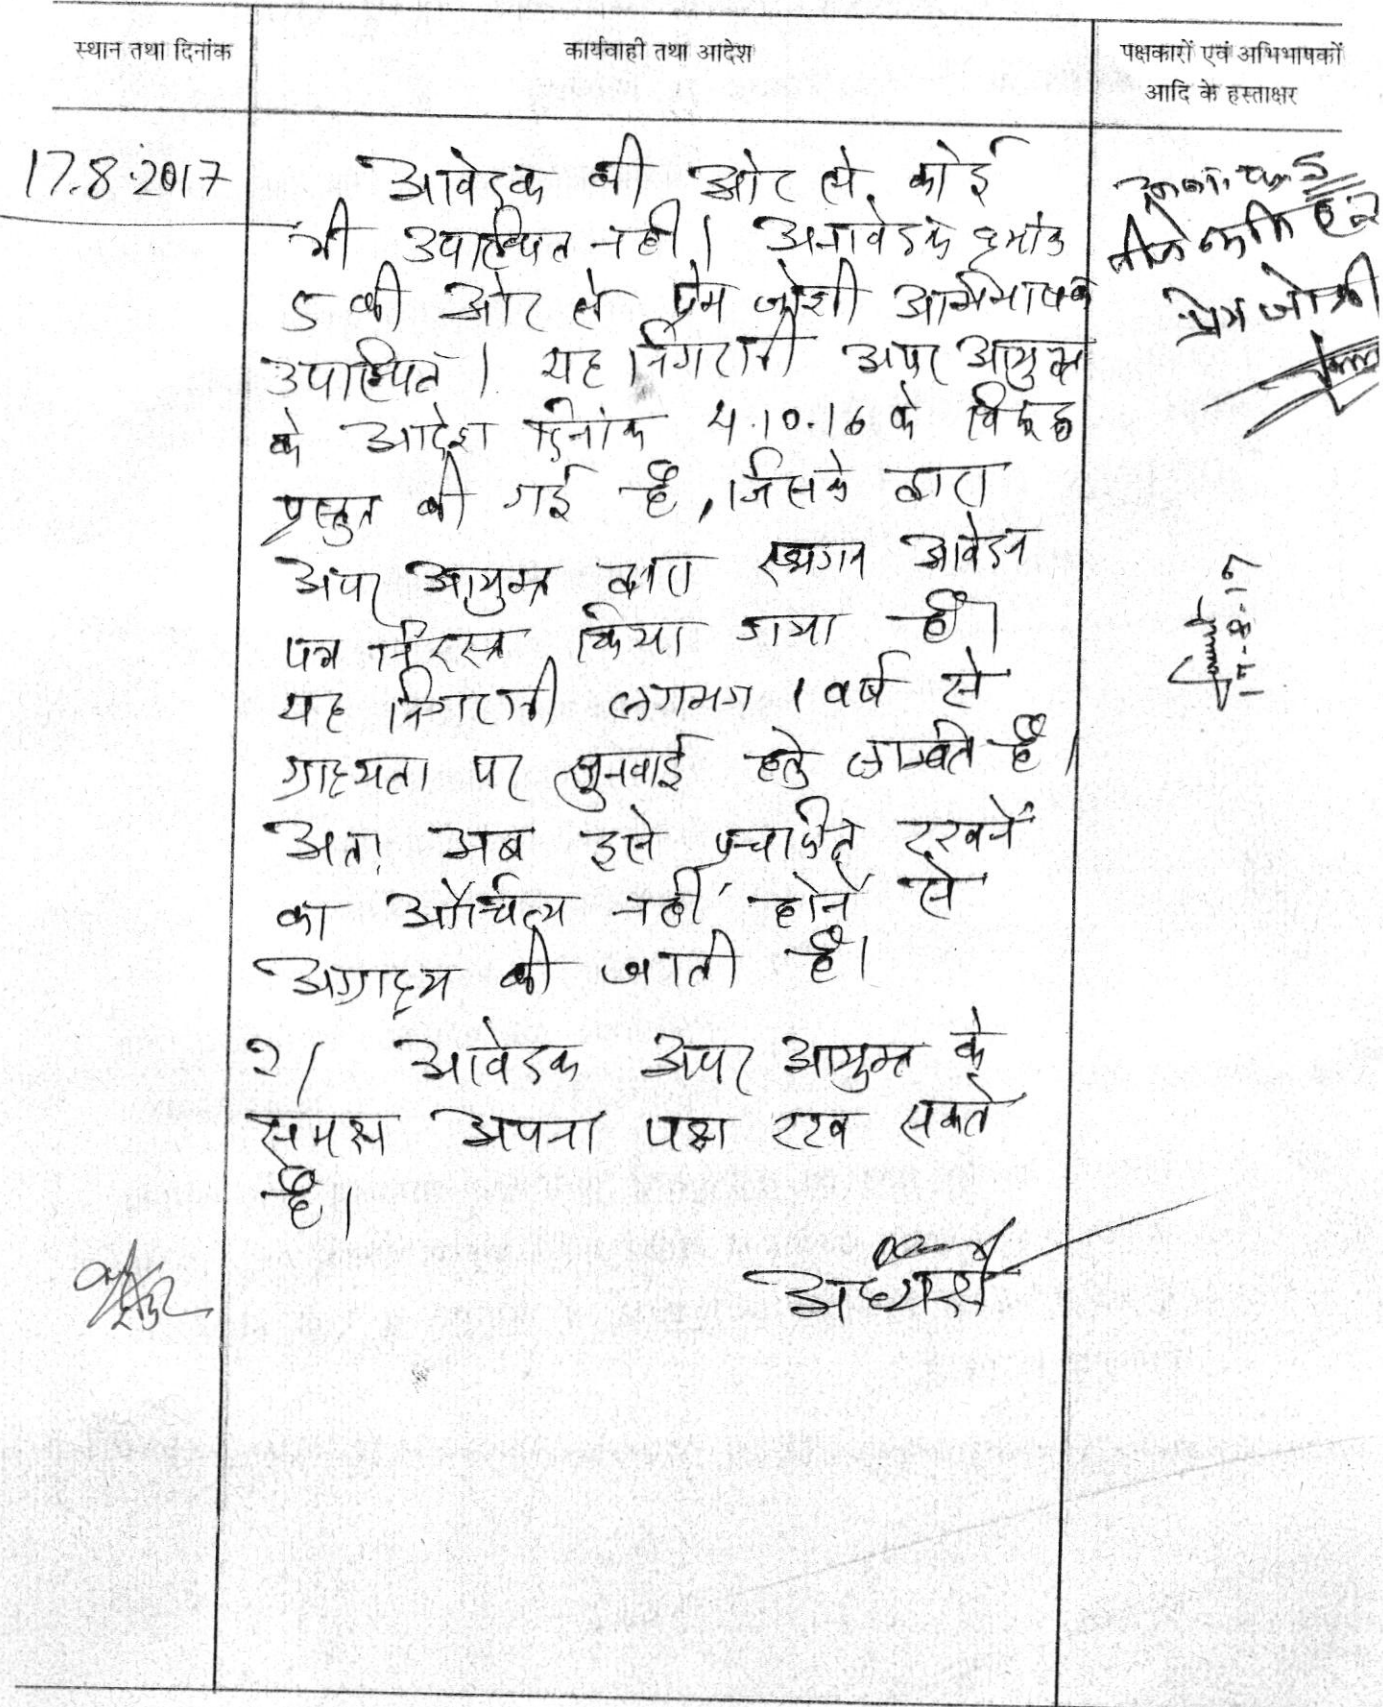 स्थान तथा दिनांक
कार्यवाही तथा आदेश
पक्षकारों एवं अभिभाषकों
आदि के हस्ताक्षर
17.8.2017
आवेदक की ओर से कोई
भी उपस्थित नहीं। अनावेदक क्रमांक
5 की ओर से प्रेम जोशी अभिभाषक
उपस्थित। यह निगरानी अपर आयुक्त
के आदेश दिनांक 4.10.16 के विरूद्ध
प्रस्तुत की गई है, जिसके द्वारा
अपर आयुक्त द्वारा स्थगन आवेदन
पत्र निरस्त किया गया है।
यह निगरानी लगभग 1 वर्ष से
ग्राह्यता पर सुनवाई हेतु लम्बित है।
अतः अब इसे प्रचलित रखने
का औचित्य नहीं होने से
अग्राह्य की जाती है।
2/ आवेदक अपर आयुक्त के
समक्ष अपना पक्ष रख सकते
है।
अध्यक्ष
प्रेम जोशी
17-8-17